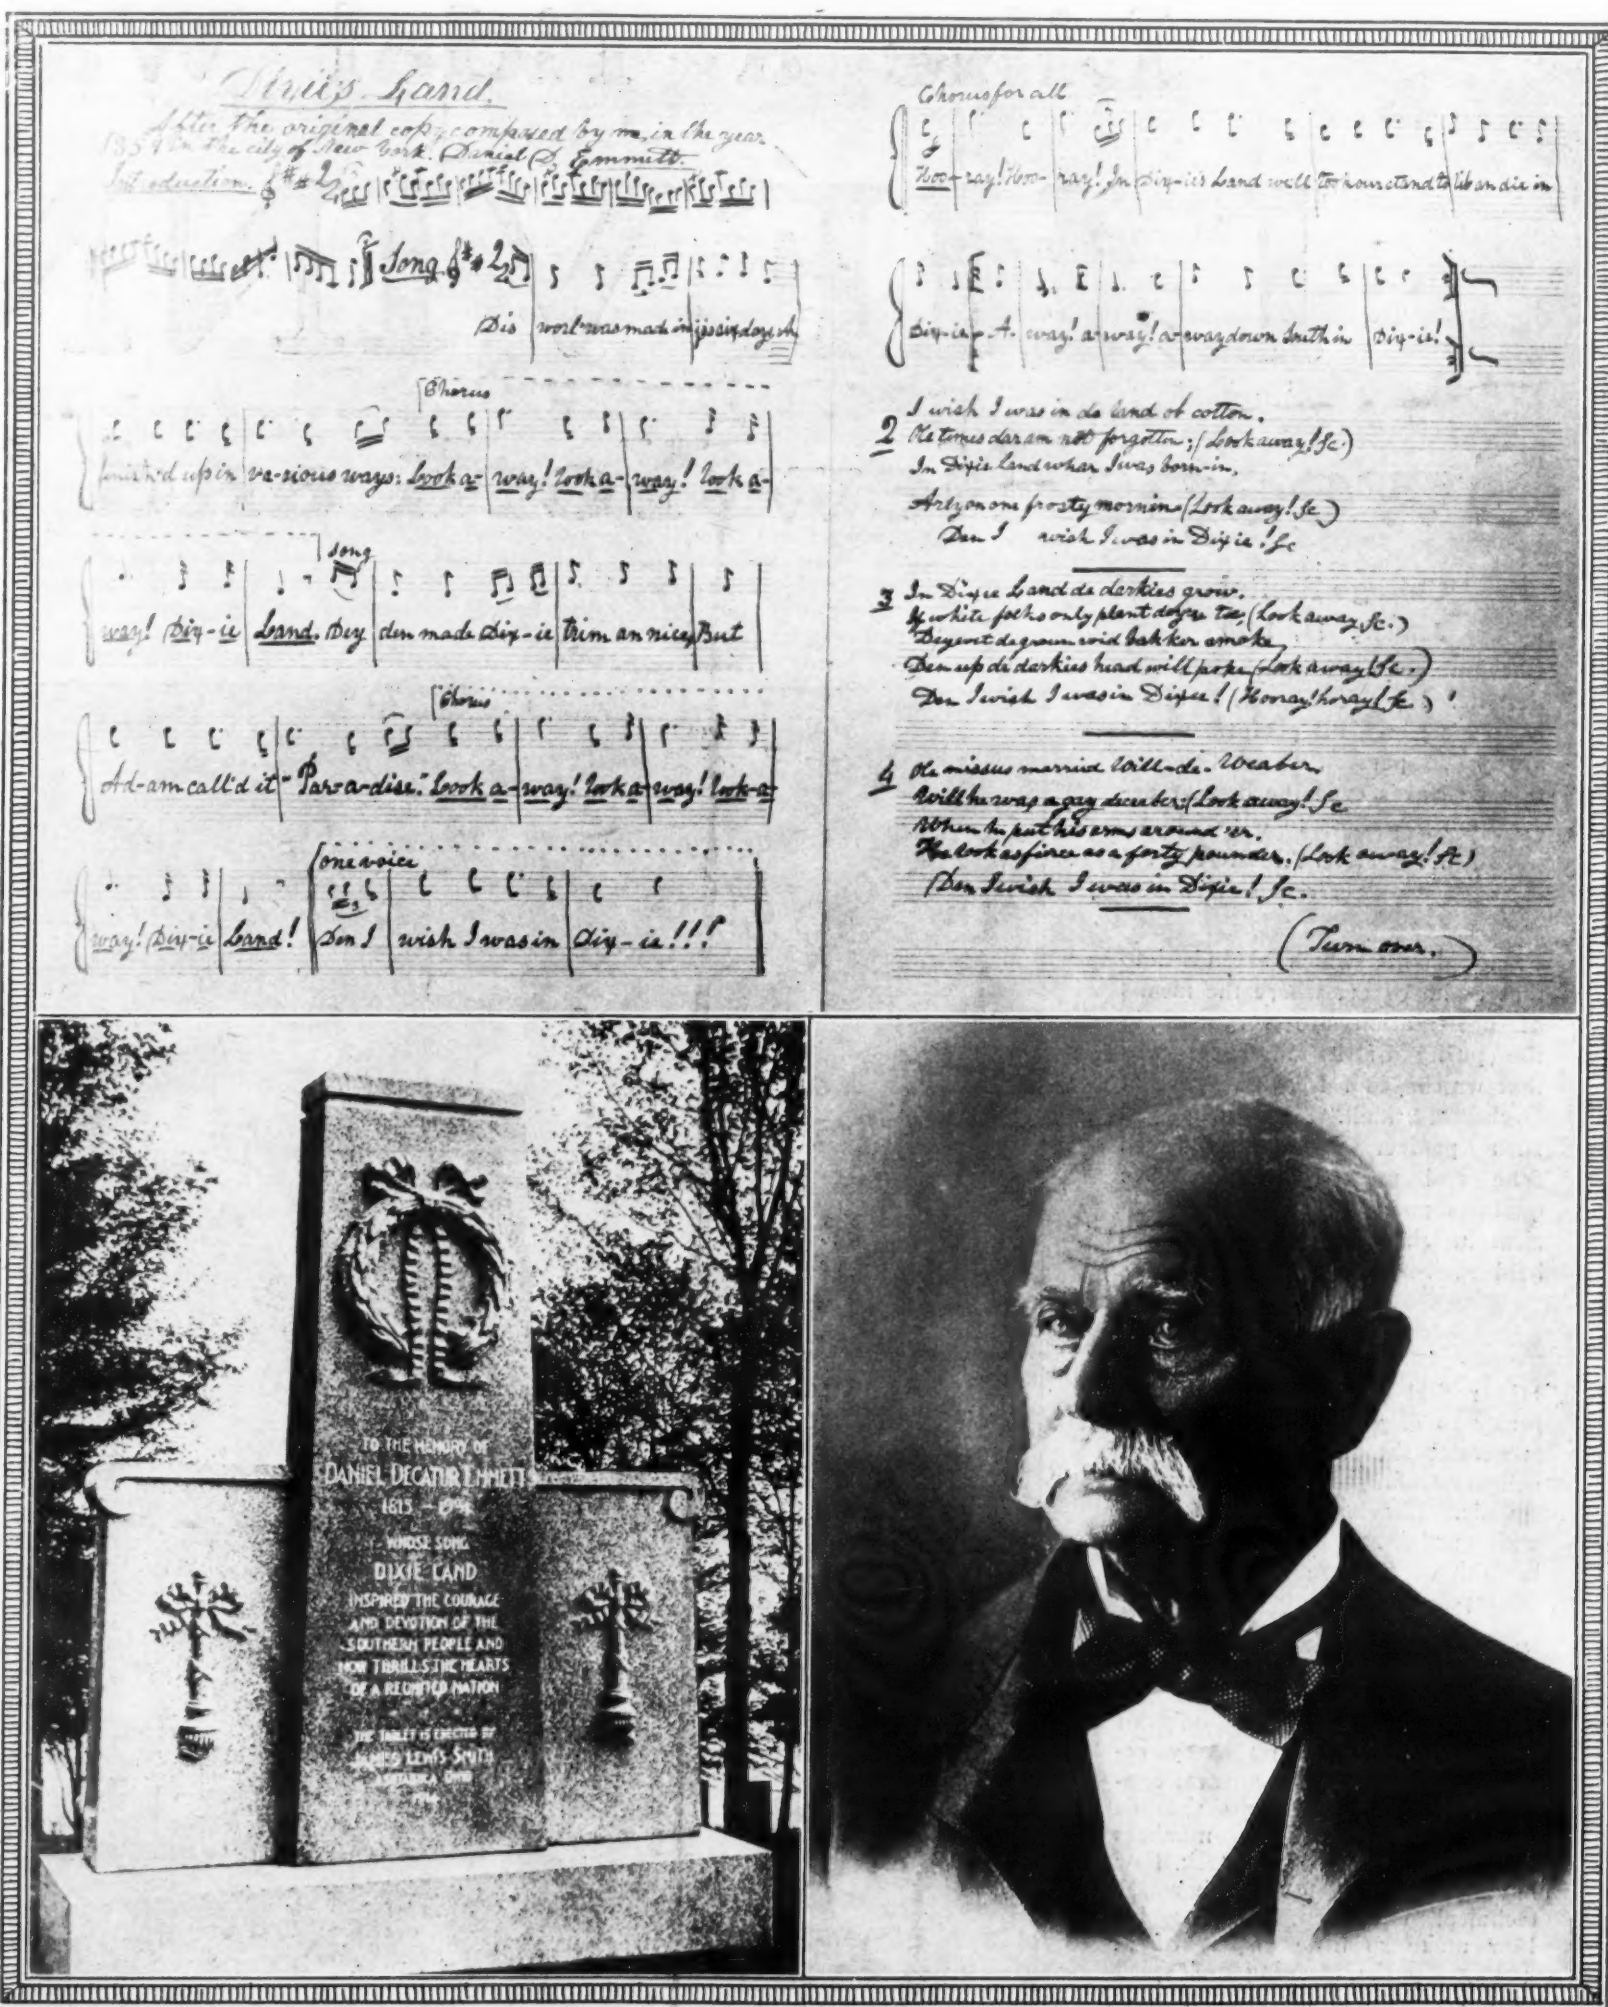 Dixie's Land.
After the original copy composed by me, in the year
1859 in the city of New York. Daniel D. Emmett.
Introduction.
Song
Dis worl' was made in jiss six days An
Chorus
finish'd up in va-rious ways: Look a-way! look a-way! look a-
Song
way! Dix-ie Land. Dey den made Dix-ie trim an nice, But
Chorus
Ad-am call'd it "Par-a-dise." Look a-way! look a-way! look-a-
one voice
way! Dix-ie Land! Den I wish I was in Dix-ie!!!
Chorus for all
Hoo-ray! Hoo-ray! In Dix-ie's Land we'll took our stand to lib an die in
Dix-ie A-way! a-way! a-way down South in Dix-ie!
2 I wish I was in de land ob cotton,
Ole times dar am not forgotten; (Look away! &c.)
In Dixie land whar I was born-in,
Arly on one frosty mornin (Look away! &c)
Den I wish I was in Dixie! &c
3 In Dixie Land de darkies grow,
If white folks only plant toe, (Look away &c.)
Dey wet de groun wid bakker smoke,
Den up de darkies head will poke (Look away! &c.)
Den I wish I was in Dixie! (Hooray! horay! &c)
4 Ole missus married Will-de-Weaber,
Will he was a gay deceeber; (Look away! &c
When he put his arms around 'er,
He look as fierce as a forty pounder, (Look away! &c)
Den I wish I was in Dixie! &c.
(Turn over.)
TO THE MEMORY OF
DANIEL DECATUR EMMETT
WHOSE SONG
DIXIE LAND
INSPIRED THE COURAGE
AND DEVOTION OF THE
SOUTHERN PEOPLE AND
NOW THRILLS THE HEARTS
OF A REUNITED NATION
THE TABLET IS ERECTED BY
JAMES LEWIS SMITH